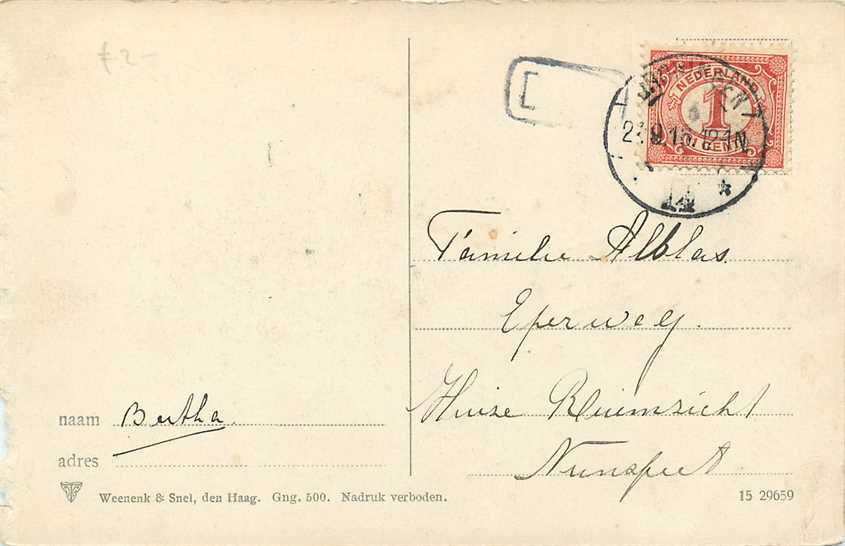 f 2-
NEDERLAND
1
CENT
14
Familie Alblas
Eperweg.
Huize Ruimzicht
Nunspeet
naam Bertha
adres
Weenenk & Snel, den Haag. Gng. 500. Nadruk verboden.
15 29659